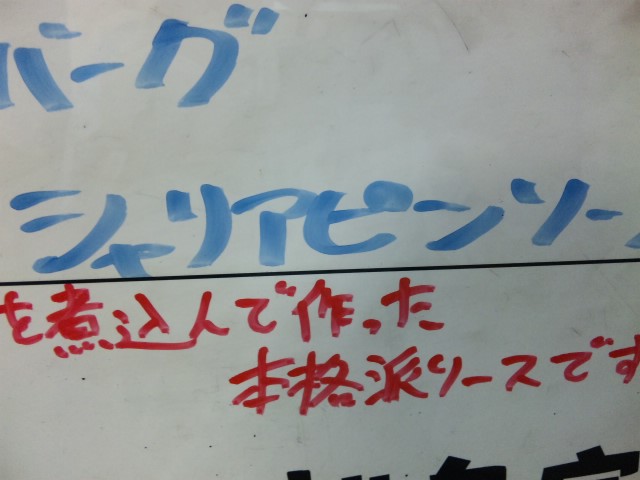 バーグ
シャリアピンソー
を煮込んで作った
本格派ソースです